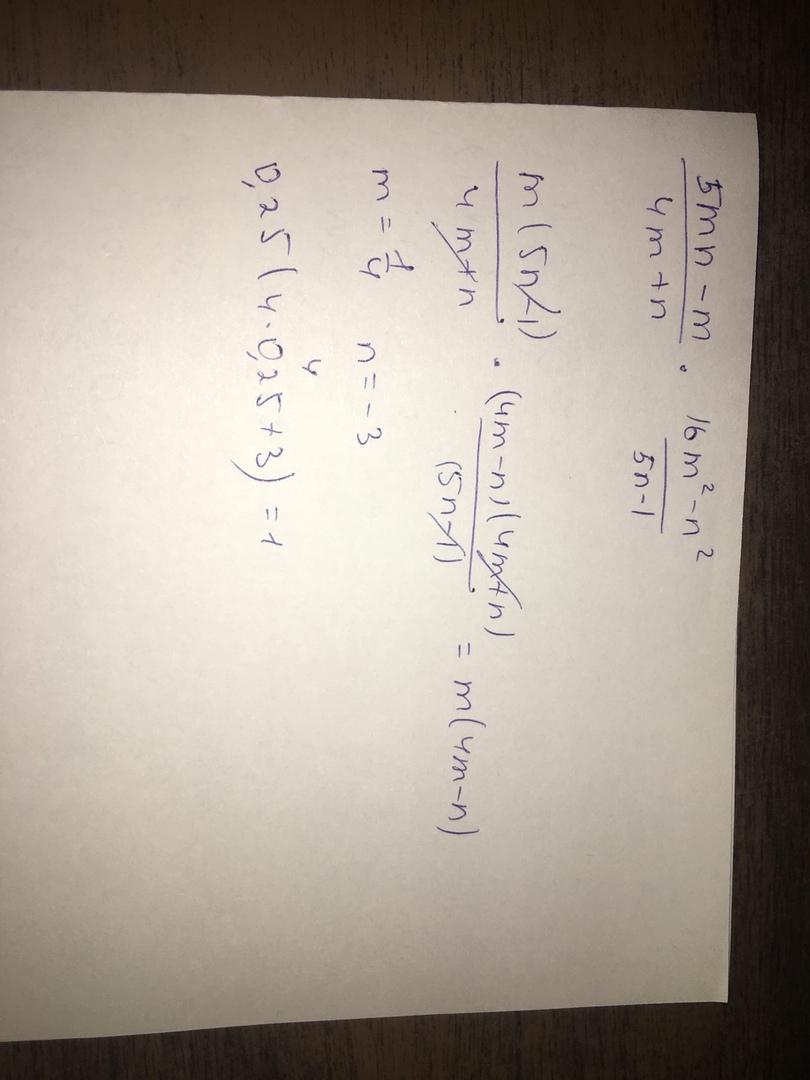 5mn - m / 4m + n · 16m² - n² / 5n - 1
m(5n-1) / 4m+n · (4m-n)(4m+n) / (5n-1) = m(4m-n)
m = 1/4 n = -3
4
0,25(4·0,25+3) = 1